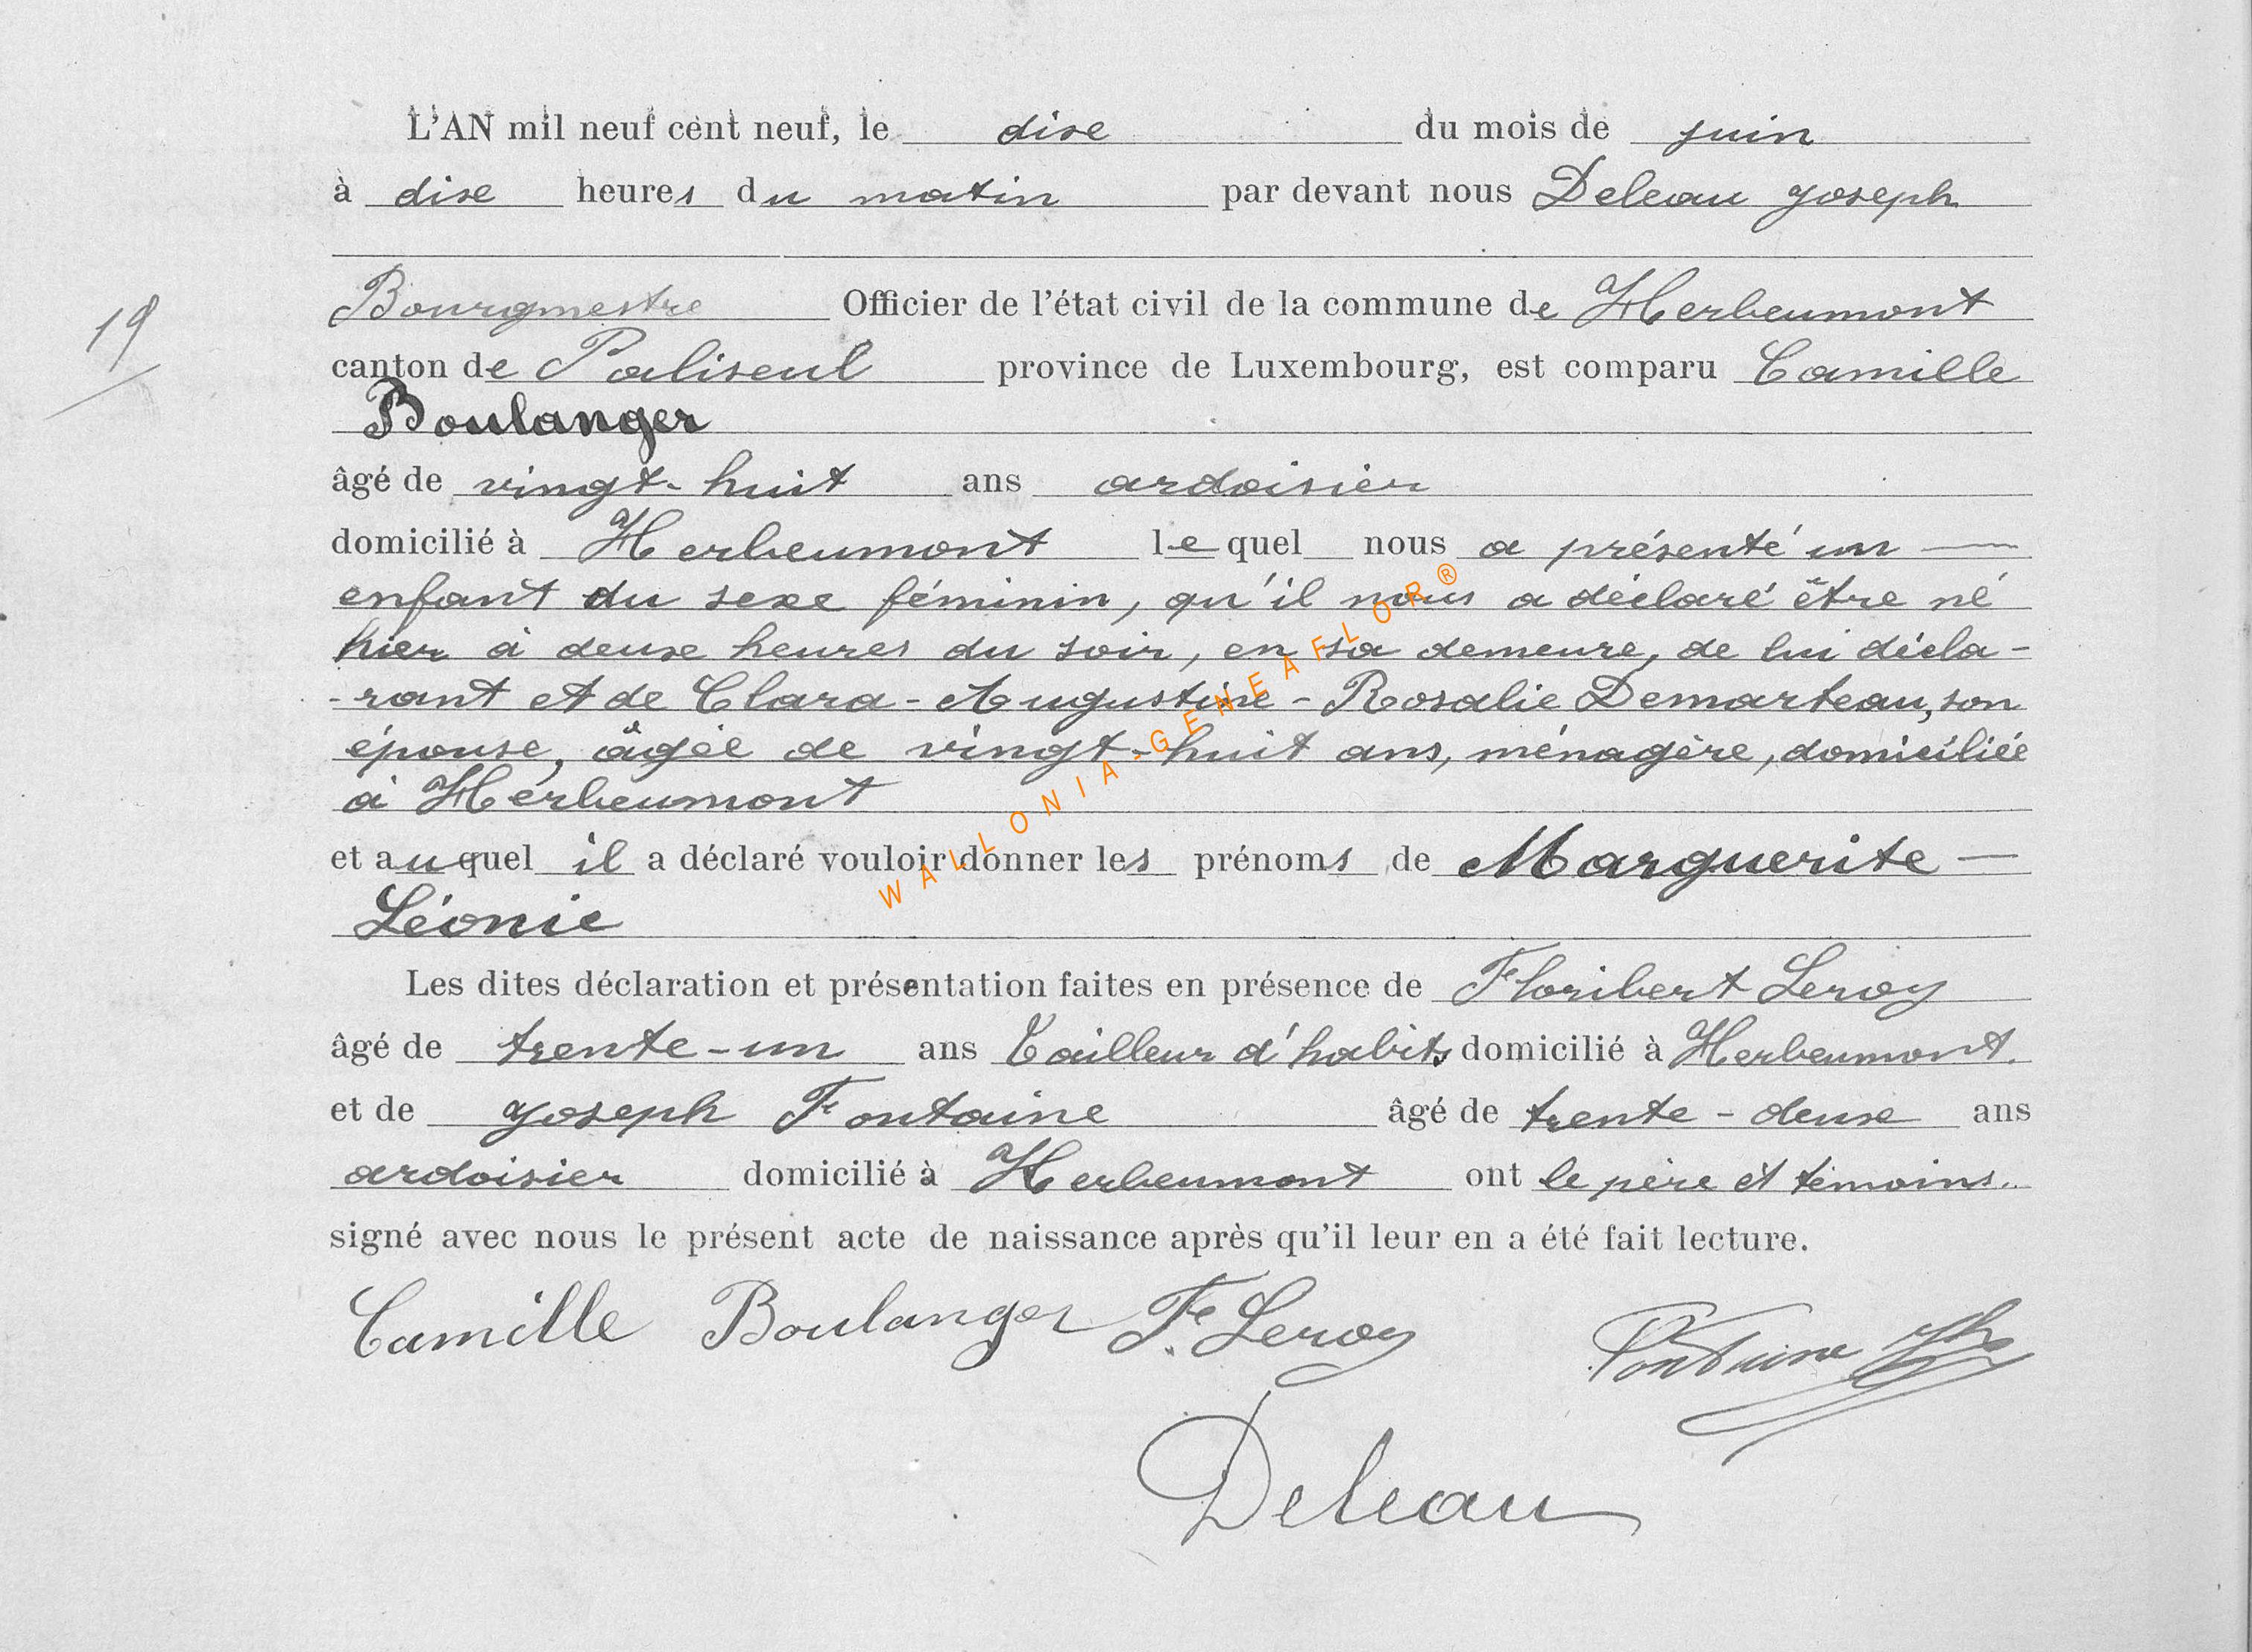 L'AN mil neuf cent neuf, le dix du mois de juin
à dix heures du matin par devant nous Deleau Joseph
Bourgmestre Officier de l'état civil de la commune de Herbeumont
19
canton de Paliseul province de Luxembourg, est comparu Camille
Boulanger
âgé de vingt-huit ans ardoisier
domicilié à Herbeumont lequel nous a présenté un —
enfant du sexe féminin, qu'il nous a déclaré être né
hier à deux heures du soir, en sa demeure, de lui décla-
-rant et de Clara-Augustine-Rosalie Demarteau, son
épouse, âgée de vingt-huit ans, ménagère, domiciliée
à Herbeumont
et auquel il a déclaré vouloir donner les prénoms de Marguerite —
Léonie
Les dites déclaration et présentation faites en présence de Floribert Leroy
âgé de trente-un ans Tailleur d'habits domicilié à Herbeumont.
et de Joseph Fontaine âgé de trente-deux ans
ardoisier domicilié à Herbeumont ont le père et témoins.
signé avec nous le présent acte de naissance après qu'il leur en a été fait lecture.
Camille Boulanger F. Leroy Fontaine Jh
Deleau
WALLONIA-GENEAFLOR®